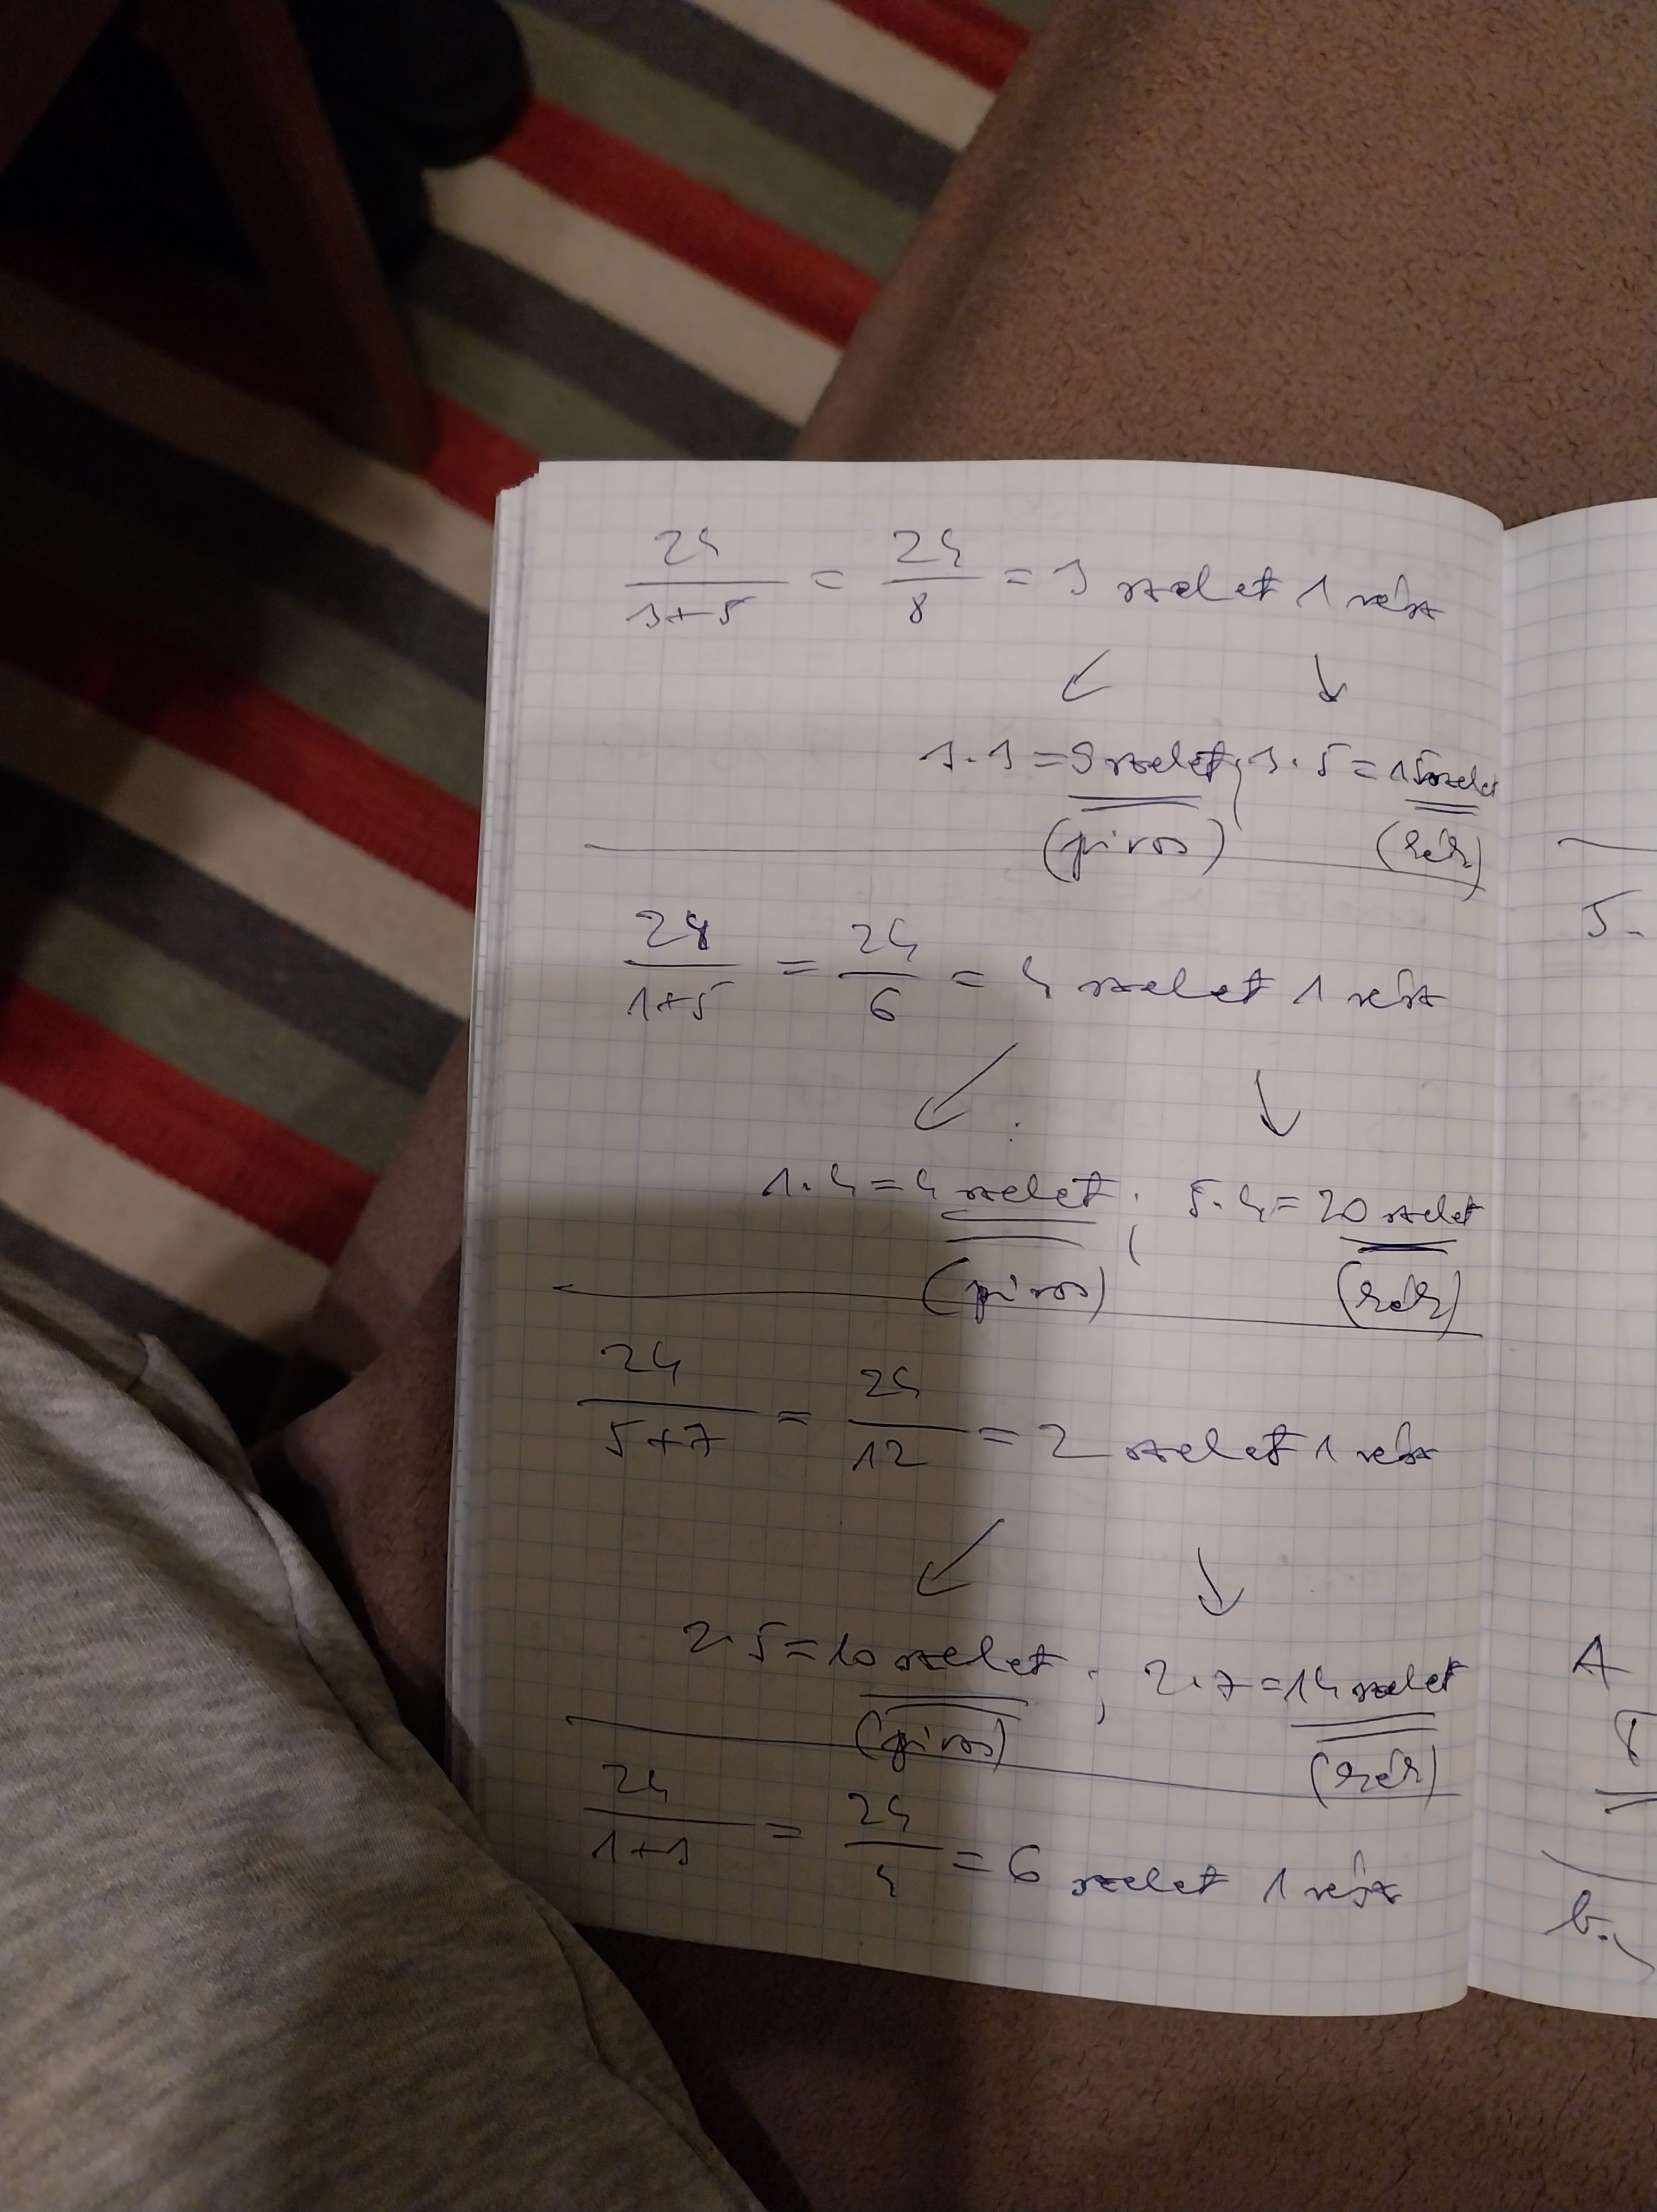 24/3+5 = 24/8 = 3 szelet 1 rész
↙ ↓
3·3 = 9 szelet; 3·5 = 15 szelet
(piros) (kék)
24/1+5 = 24/6 = 4 szelet 1 rész
↙ ↓
1·4 = 4 szelet; 5·4 = 20 szelet
(piros) (kék)
24/5+7 = 24/12 = 2 szelet 1 rész
↙ ↓
2·5 = 10 szelet; 2·7 = 14 szelet
(piros) (kék)
24/1+3 = 24/4 = 6 szelet 1 rész
5.
A
b.,